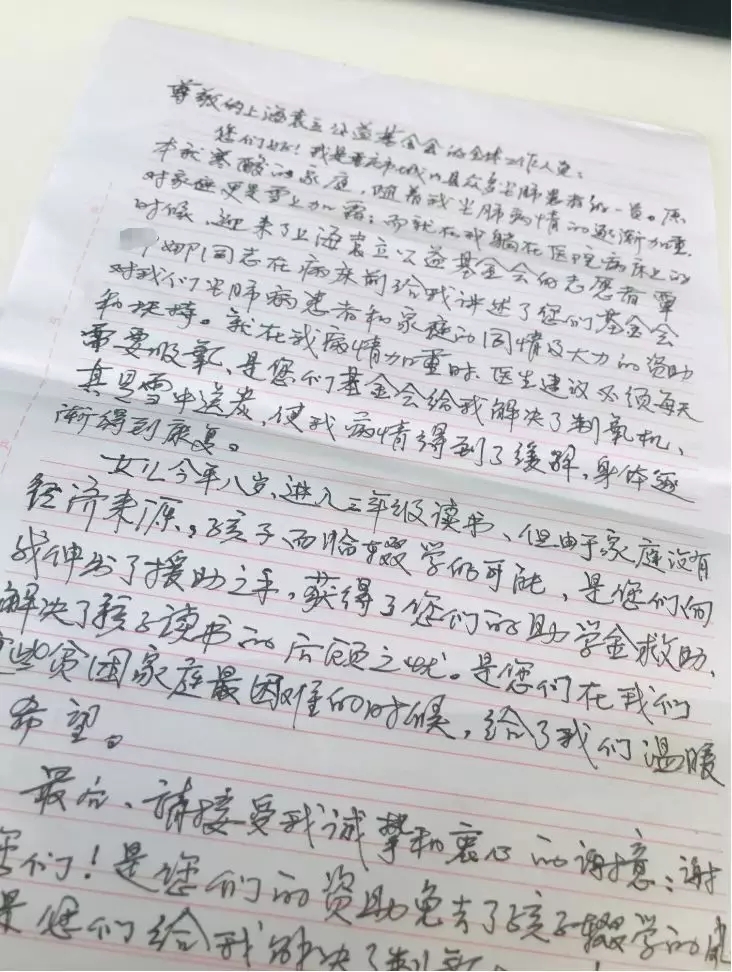 尊敬的上海袁立公益基金会的全体工作人员:
您们好!我是重庆市城口县众多尘肺患者的一员。原
本我寒酸的家庭,随着我尘肺病情的逐渐加重,
对家庭更是雪上加霜;而就在我躺在医院病床上的
时候,迎来了上海袁立公益基金会的志愿者覃
同志在病床前给我讲述了您们基金会
对我们尘肺病患者和家庭的同情及大力的资助
和扶持。就在我病情加重时、医生建议必须每天
需要吸氧、是您们基金会给我解决了制氧机、
真是雪中送炭,使我病情得到了缓解,身体逐
渐得到康复。
女儿今年八岁,进入三年级读书、但由于家庭没有
经济来源,孩子面临辍学的可能,是您们向
我伸出了援助之手,获得了您们的助学金救助,
解决了孩子读书的后顾之忧。是您们在我们
些贫困家庭最困难的时候,给了我们温暖
希望。
最后、请接受我诚挚和衷心的谢意:谢
您们!是您们的资助免去了孩子辍学的
是您们给我解决了制氧